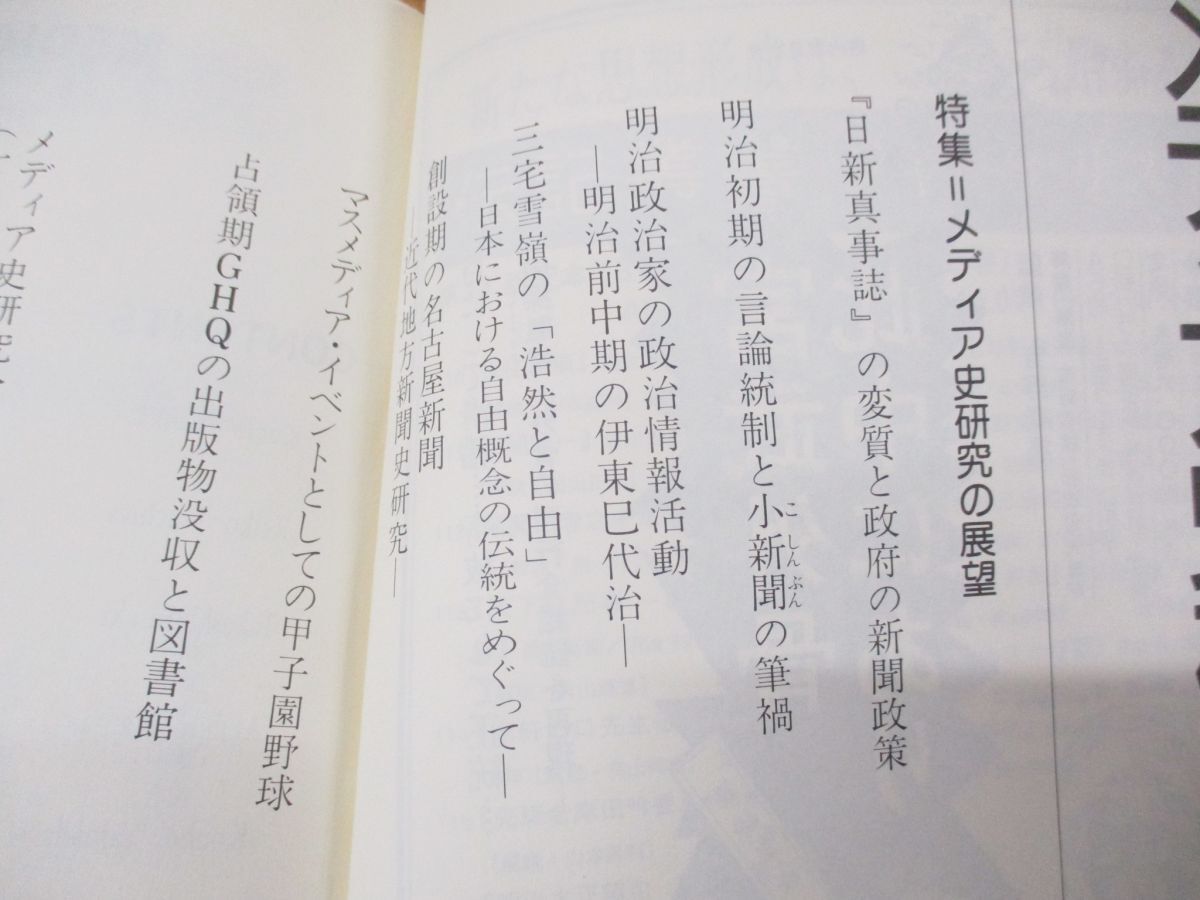 特集=メディア史研究の展望
『日新真事誌』の変質と政府の新聞政策
明治初期の言論統制と小新聞の筆禍
こしんぶん
明治政治家の政治情報活動
―明治前中期の伊東巳代治―
三宅雪嶺の「浩然と自由」
―日本における自由概念の伝統をめぐって―
創設期の名古屋新聞
―近代地方新聞史研究―
マスメディア・イベントとしての甲子園野球
占領期GHQの出版物没収と図書館
メディア史研究